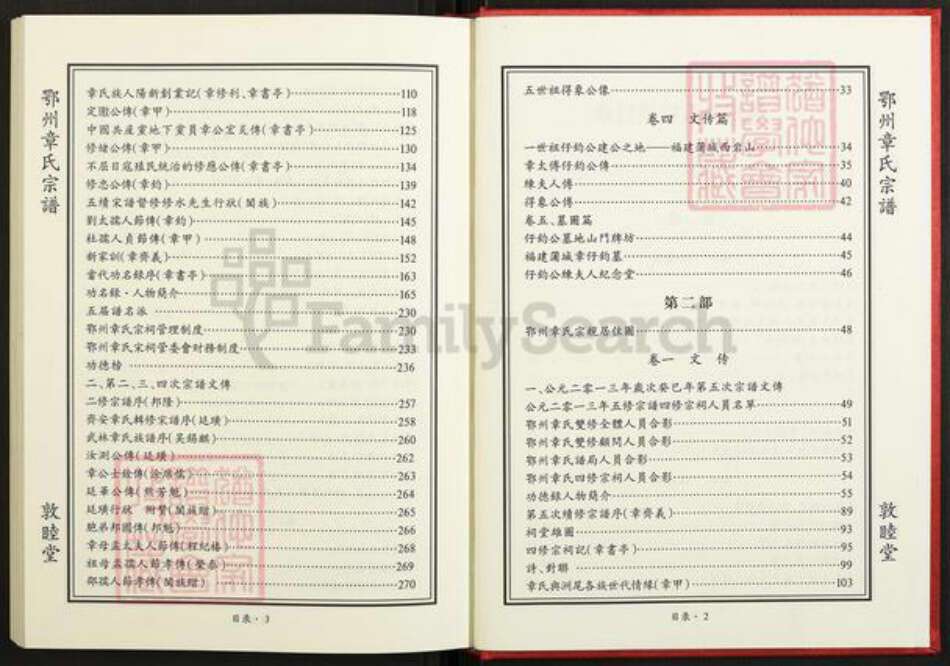 鄂州章氏宗譜
五世祖得象公像 33
卷四 文传篇
一世祖仔鈞公建公之地——福建蒲城西岩山 34
章太傅仔鈞公傳 35
練夫人傳 40
得象公傳 42
卷五、墓圖篇
仔鈞公墓地山門牌坊 44
福建蒲城章仔鈞墓 45
仔鈞公練夫人紀念堂 46
第二部
鄂州章氏宗親居住圖 48
卷一 文 传
一、公元二零一三年歲次癸巳年第五次宗譜文傳
公元二零一三年五修宗譜四修宗祠人員名單 49
鄂州章氏雙修全體人員合影 51
鄂州章氏雙修顧問人員合影 52
鄂州章氏譜局人員合影 53
鄂州章氏四修宗祠人員合影 54
功德錄人物簡介 55
第五次續修宗譜序(章齊義) 89
祠堂雄圖 93
四修宗祠記(章書亭) 95
詩、對聯 99
章氏與洲尾各族世代情緣(章甲) 103
敦睦堂
目录·2
章氏族人陽新創業記(章修利、章書亭) 110
定國公傳(章甲) 118
中國共産黨地下黨員章公宏炎傳(章書亭) 125
修緒公傳(章甲) 130
不屈日寇殖民統治的修應公傳(章書亭) 134
修忠公傳(章鈞) 139
五續宗譜督修修水先生行狀(閣族) 142
劉太孺人節傳(章鈞) 145
杜孺人貞節傳(章甲) 148
新家訓(章齊義) 152
當代功名録序(章書亭) 163
功名録·人物簡介 165
五届譜名派 230
鄂州章氏宗祠管理制度 230
鄂州章氏宋祠管委會財務制度 233
功德榜 236
二、第二、三、四次宗譜文傳
二修宗譜序(邦隆) 257
齊安章氏輯修宗譜序(廷璜) 258
武林章氏族譜序(吴錫麒) 260
汝測公傳(廷璜) 262
章公士銓傳 263
廷華公傳(熊芳魁) 264
廷璜行狀 附贊(閣族贈) 265
胞弟邦國傳(邦魁) 266
章母孟太夫人節傳(程紀椿) 268
祖母孟孺人節孝傳(榮泰) 269
邵孺人節孝傳(閣族贈) 270
目录·3
鄂州章氏宗譜
敦睦堂
FamilySearch